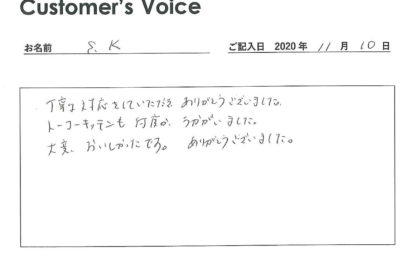 Customer's Voice
お名前 S.K ご記入日 2020年 11月 10日
丁寧な対応をしていただき ありがとうございました。
トーコーキッチンも 何度か、うかがいました。
大変、おいしかったです。 ありがとうございました。